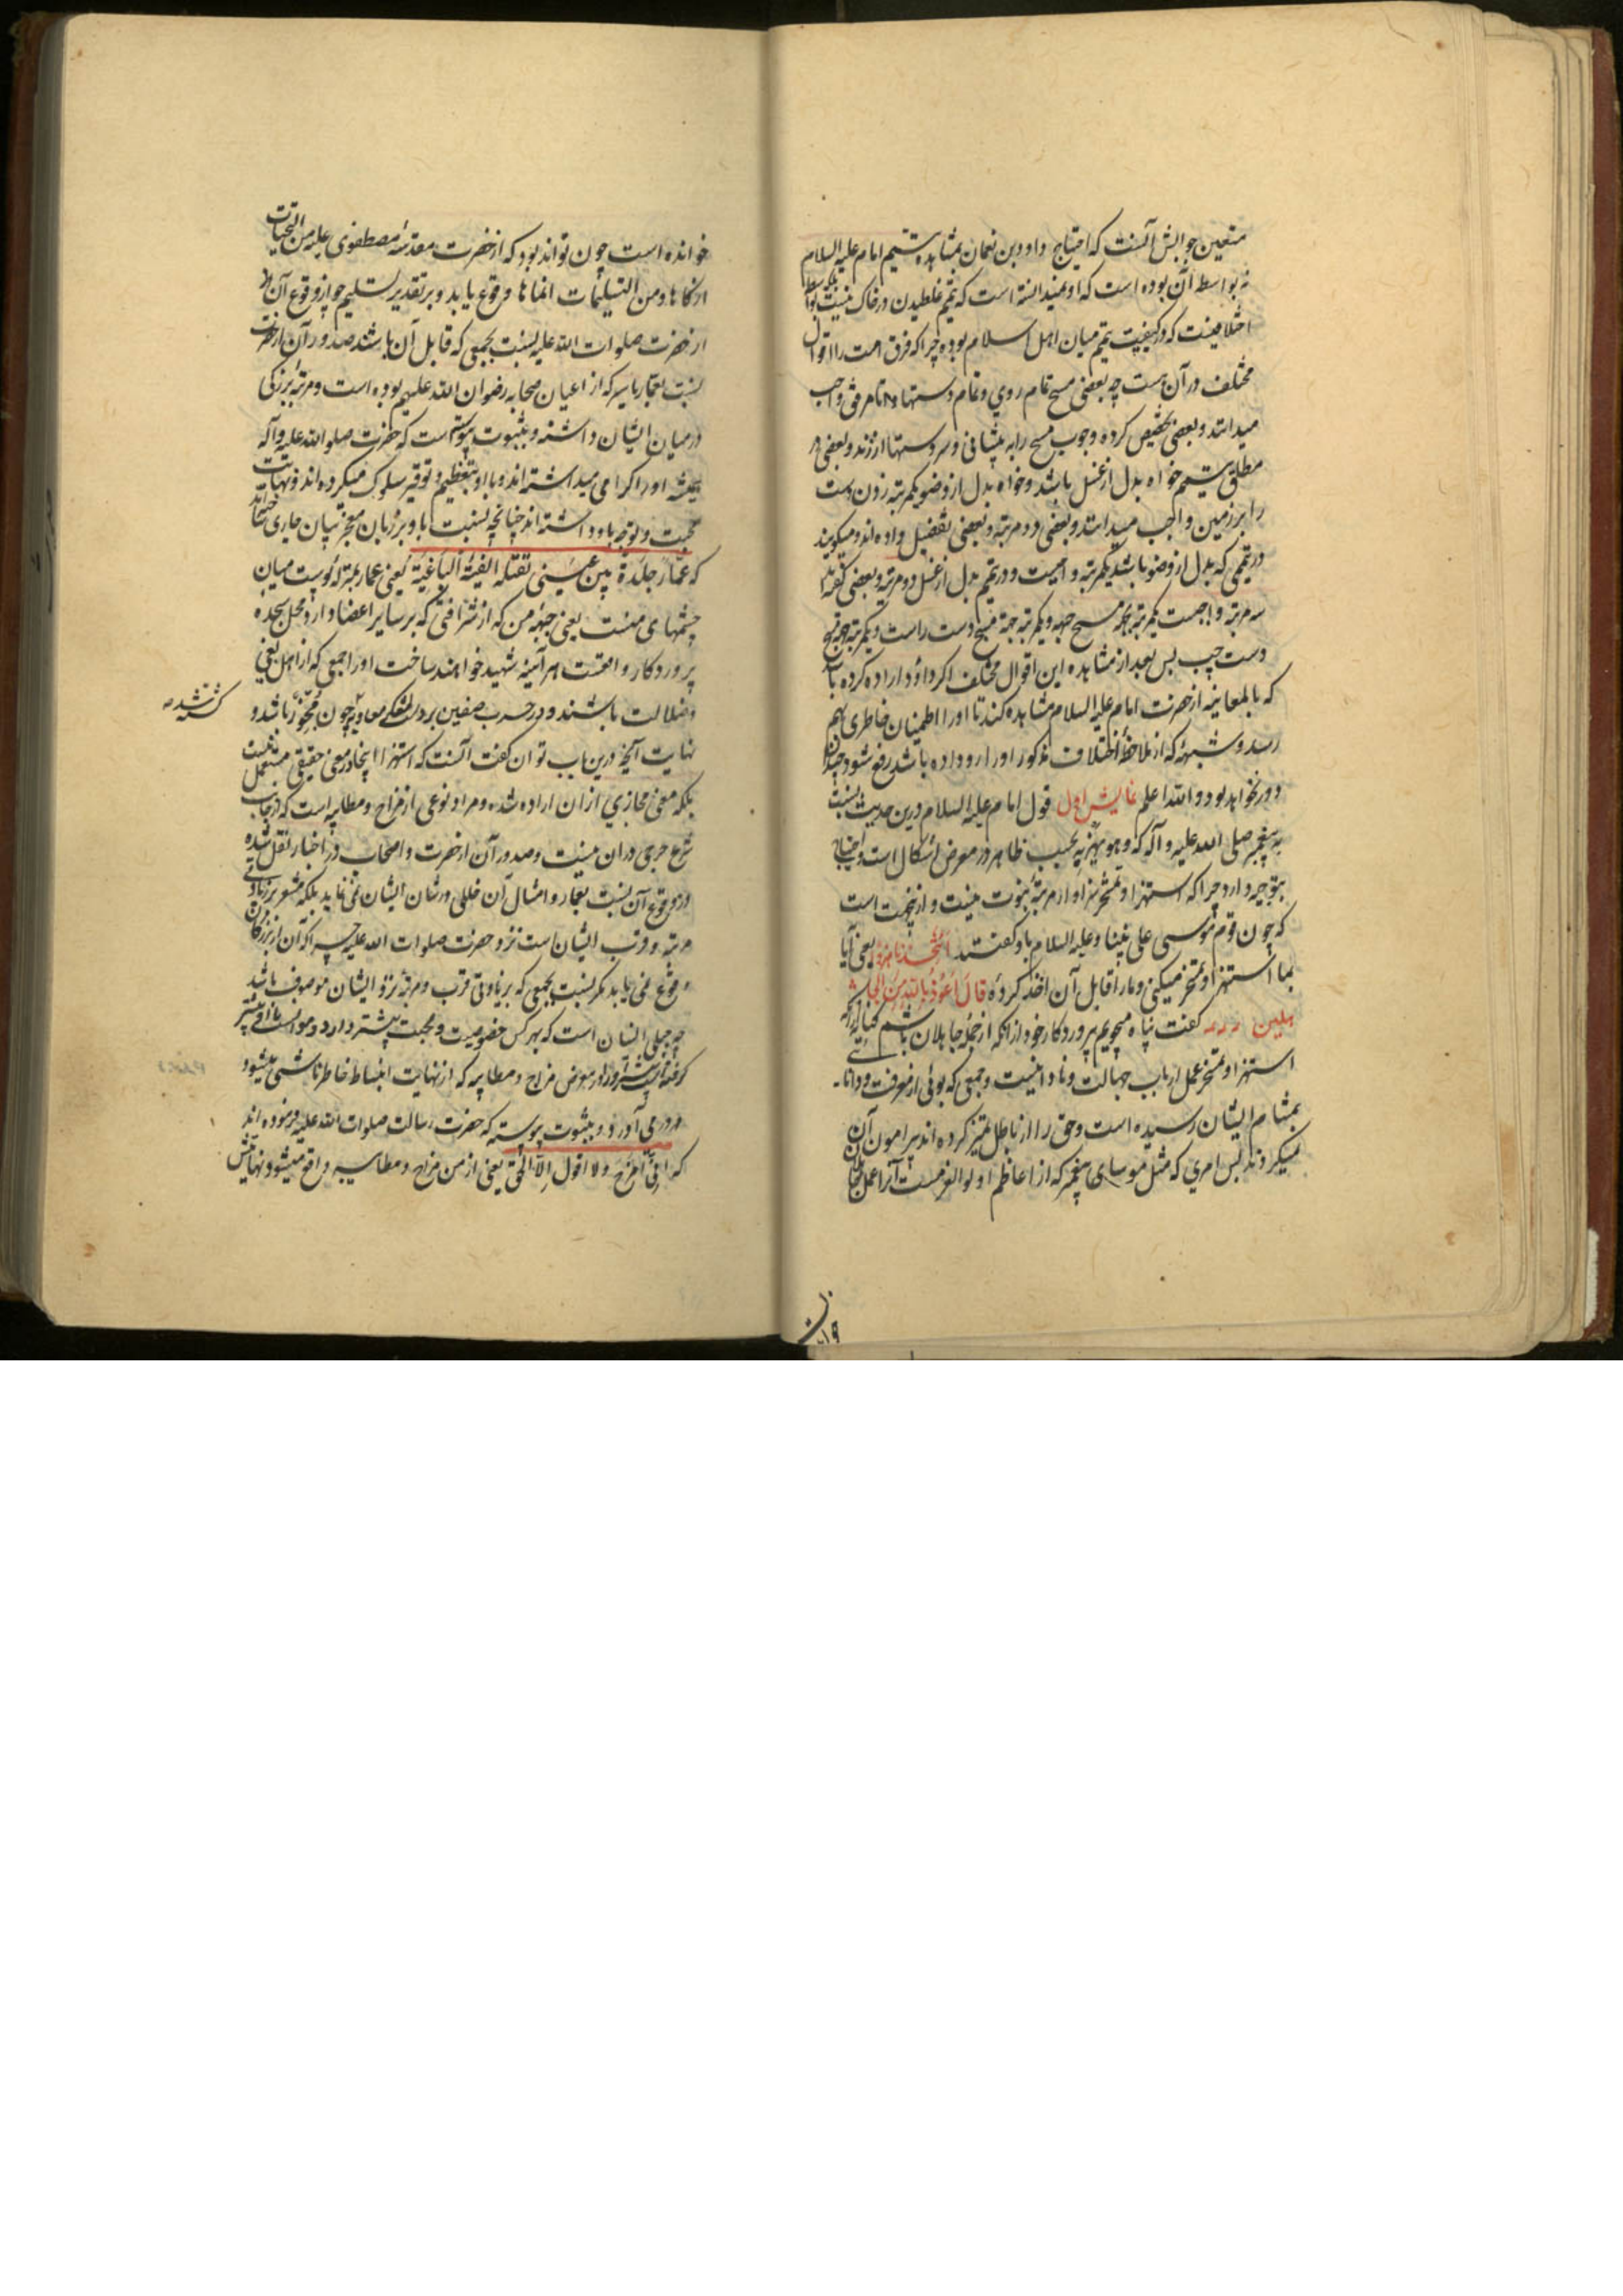 متعین جوابش آنست که احتیاج داود بن نعمان بمشاهده تیمم امام علیه السلام
نه بواسطه آن بوده است که او نمیدانسته است که تیمم غلطیدن در خاک نیست بلکه بواسطه
اختلافیست که در کیفیت تیمم میان اهل اسلام بوده چرا که فرق امت را اقوال
مختلف در آن هست چه بعضی مسح تمام روی و تمام دستها را تا مرفق واجب
میدانند و بعضی تخصیص کرده وجوب مسح را به پیشانی و سر دستها ارزند و بعضی در
مطلق تیمم خواه بدل از غسل باشد و خواه بدل از وضو یکمرتبه زدن دست
را بر زمین واجب میدانند و بعضی دو مرتبه و بعضی تفصیل داده اند و میگویند
در تیممی که بدل از وضو باشد یکمرتبه واجبست و در تیمم بدل از غسل دو مرتبه و بعضی گفته اند
سه مرتبه واجبست یکمرتبه بجهة مسح جبهه و یکمرتبه جهة مسح دست راست و یکمرتبه بجهة مسح
دست چپ پس بعد از مشاهده این اقوال مختلف اکر داؤد اراده کرده باشد
که بالمعاینه از حضرت امام علیه السلام مشاهده کند تا او را اطمینان خاطری بهم
رسد و شبهۀ که از ملاحظۀ اختلاف مذکور او را رو داده باشد رفع شود چندان
دور نخواهد بود والله اعلم نمایش اول قول امام علیه السلام درین حدیث بنسبت
به پیغمبر صلی الله علیه و آله که وهو یهزء به بحسب ظاهر در معرض اشکال است و احتیاج
بتوجیه دارد چرا که استهزا و تمسخر سزاوار مرتبۀ نبوت نیست و ازینجهت است
که چون قوم موسی علی نبینا و علیه السلام باو گفتند اتتخذنا هزوا یعنی آیا
بما استهزا و تمسخر میکنی و ما را قابل آن اخذ کردۀ قال اعوذ بالله ان اکون من الجا
هلین گفت پناه میجویم پروردکار خود از انکه از جملۀ جاهلان باشم
استهزا و تمسخر عمل ارباب جهالت و نادانیست و جمعی که بوئی از معرفت و دانائی
بمشام ایشان رسیده است و حق را از باطل تمیز کرده اند پیرامون آن
نمیکردند پس امری که مثل موسای پیغمبر که از اعاظم اولو العزمست آنرا عمل جاهلان
خوانده است چون تواند بود که از حضرت مقدسۀ مصطفوی علیه من التحیات
ازکاها و من التسلیمات انماها وقوع یابد و بر تقدیر تسلیم جواز وقوع آن از
آنحضرت صلوات الله علیه بنسبت بجمعی که قابل آن باشند صدور آن از حضرت
بنسبت بعمار یاسر که از اعیان صحابه رضوان الله علیهم بوده است و مرتبۀ بزرکی
درمیان ایشان داشته و بثبوت پیوسته است که حضرت صلوا الله علیه و آله
همیشه او را کرامی میداشته اند و با او بتعظیم و توقیر سلوک میکرده اند و نهایت
محبت و توجه باو داشته اند چنانچه بنسبت باو بر زبان معجز بیان جاری ساخته اند
که عمار جلدة بین عینی تقتله الفئة الباغیة یعنی عمار بمنزلۀ پوست میان
چشمهای منست یعنی جبهۀ من که از شرافتی که بر سایر اعضا دارد محل سجدۀ
پروردکار واقعست هر آینه شهید خواهند ساخت او را جمعی که از اهل بغی
و ضلالت باشند و در حرب صفین بر دست لشکر معاویه چون مجوز باشد و
کشته شده
نهایت آنچه درین باب توان گفت آنست که استهزا اینجا در معنی حقیقی مستعمل نیست
بلکه معنی مجازی ازان اراده شده و مراد نوعی از مزاح و مطایبه است که از جانب
شرع حرجی دران نیست و صدور آن از حضرت و اصحاب در اخبار نقل شده
و وقوع آن بنسبت بعمار و امثال آن خللی در شان ایشان نمی نماید بلکه مشعر بر زیادتی
مرتبه و قرب ایشان است نزد حضرت صلوات الله علیه چرا که آن از بزرکان
وقوع نمی یابد مکر بنسبت بجمعی که بزیادتی قرب و مرتبه نزد ایشان موصوف باشد
چه جبلی انسان است که بهر کس خصوصیت و محبت بیشتر دارد و موانست با او بیشتر
کرفته بیشتر او را در معرض مزاح و مطایبه که از نهایت انبساط خاطر ناشی میشود
در می آورد و بثبوت پیوسته که حضرت رسالت صلوات الله علیه فرموده اند
که انی امزح ولا اقول الا الحق یعنی از من مزاح و مطایبه واقع میشود و نهایتش